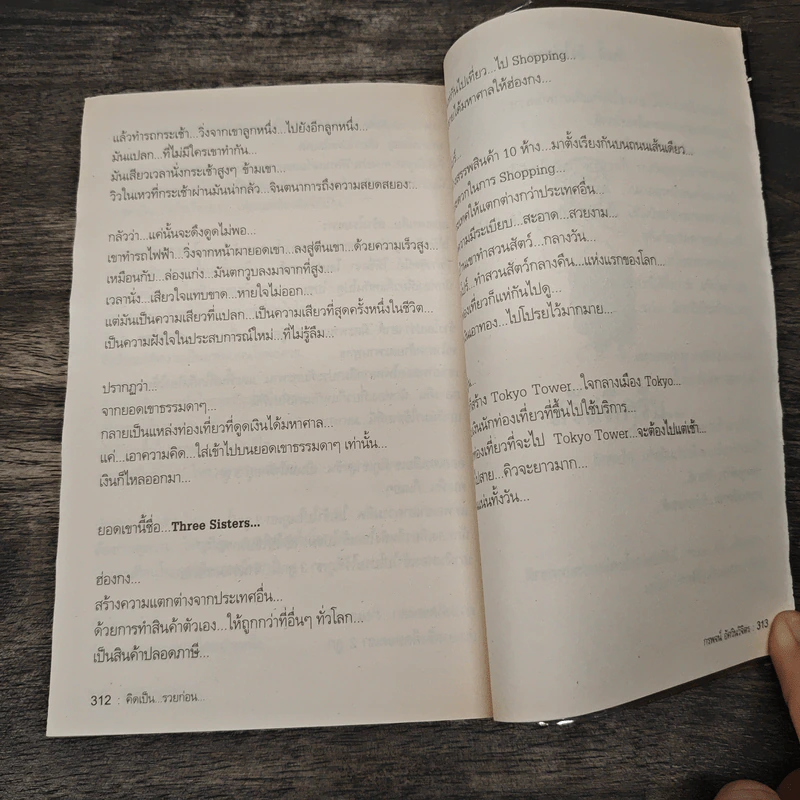 แล้วทำรถกระเช้า...วิ่งจากเขาลูกหนึ่ง...ไปยังอีกลูกหนึ่ง...
มันแปลก...ที่ไม่มีใครเขาทำกัน...
มันเสียวเวลานั่งกระเช้าสูงๆ ข้ามเขา...
วิวในเหวที่กระเช้าผ่านมันน่ากลัว...จินตนาการถึงความสยดสยอง...
กลัวว่า...แค่นั้นจะดึงดูดไม่พอ...
เขาทำรถไฟฟ้า...วิ่งจากหน้าผายอดเขา...ลงสู่ตีนเขา...ด้วยความเร็วสูง...
เหมือนกับ...ล่องแก่ง...มันตกวูบลงมาจากที่สูง...
เวลานั่ง...เสียวใจแทบขาด...หายใจไม่ออก...
แต่มันเป็นความเสียวที่แปลก...เป็นความเสียวที่สุดครั้งหนึ่งในชีวิต...
เป็นความฝังใจในประสบการณ์ใหม่...ที่ไม่รู้ลืม...
ปรากฏว่า...
จากยอดเขาธรรมดาๆ...
กลายเป็นแหล่งท่องเที่ยวที่ดูดเงินได้มหาศาล...
แค่...เอาความคิด...ใส่เข้าไปบนยอดเขาธรรมดาๆ เท่านั้น...
เงินก็ไหลออกมา...
ยอดเขานี้ชื่อ...Three Sisters...
ฮ่องกง...
สร้างความแตกต่างจากประเทศอื่น...
ด้วยการทำสินค้าตัวเอง...ให้ถูกกว่าที่อื่นๆ ทั่วโลก...
เป็นสินค้าปลอดภาษี...
312 : คิดเป็น...รวยก่อน...
กันไปเที่ยว...ไป Shopping...
ได้มหาศาลให้ฮ่องกง...
สรรพสินค้า 10 ห้าง...มาตั้งเรียงกันบนถนนเส้นเดียว...
ดวกในการ Shopping...
เทศให้แตกต่างกว่าประเทศอื่น...
ความมีระเบียบ...สะอาด...สวยงาม...
เขาทำสวนสัตว์...กลางวัน...
...ทำสวนสัตว์กลางคืน...แห่งแรกของโลก...
องเที่ยวก็แห่กันไปดู...
เงินเอาทอง...ไปโปรยไว้มากมาย...
สร้าง Tokyo Tower...ใจกลางเมือง Tokyo...
นักท่องเที่ยวที่ขึ้นไปใช้บริการ...
ท่องเที่ยวที่จะไป Tokyo Tower...จะต้องไปแต่เช้า...
ไปสาย...คิวจะยาวมาก...
แน่นทั้งวัน...
313